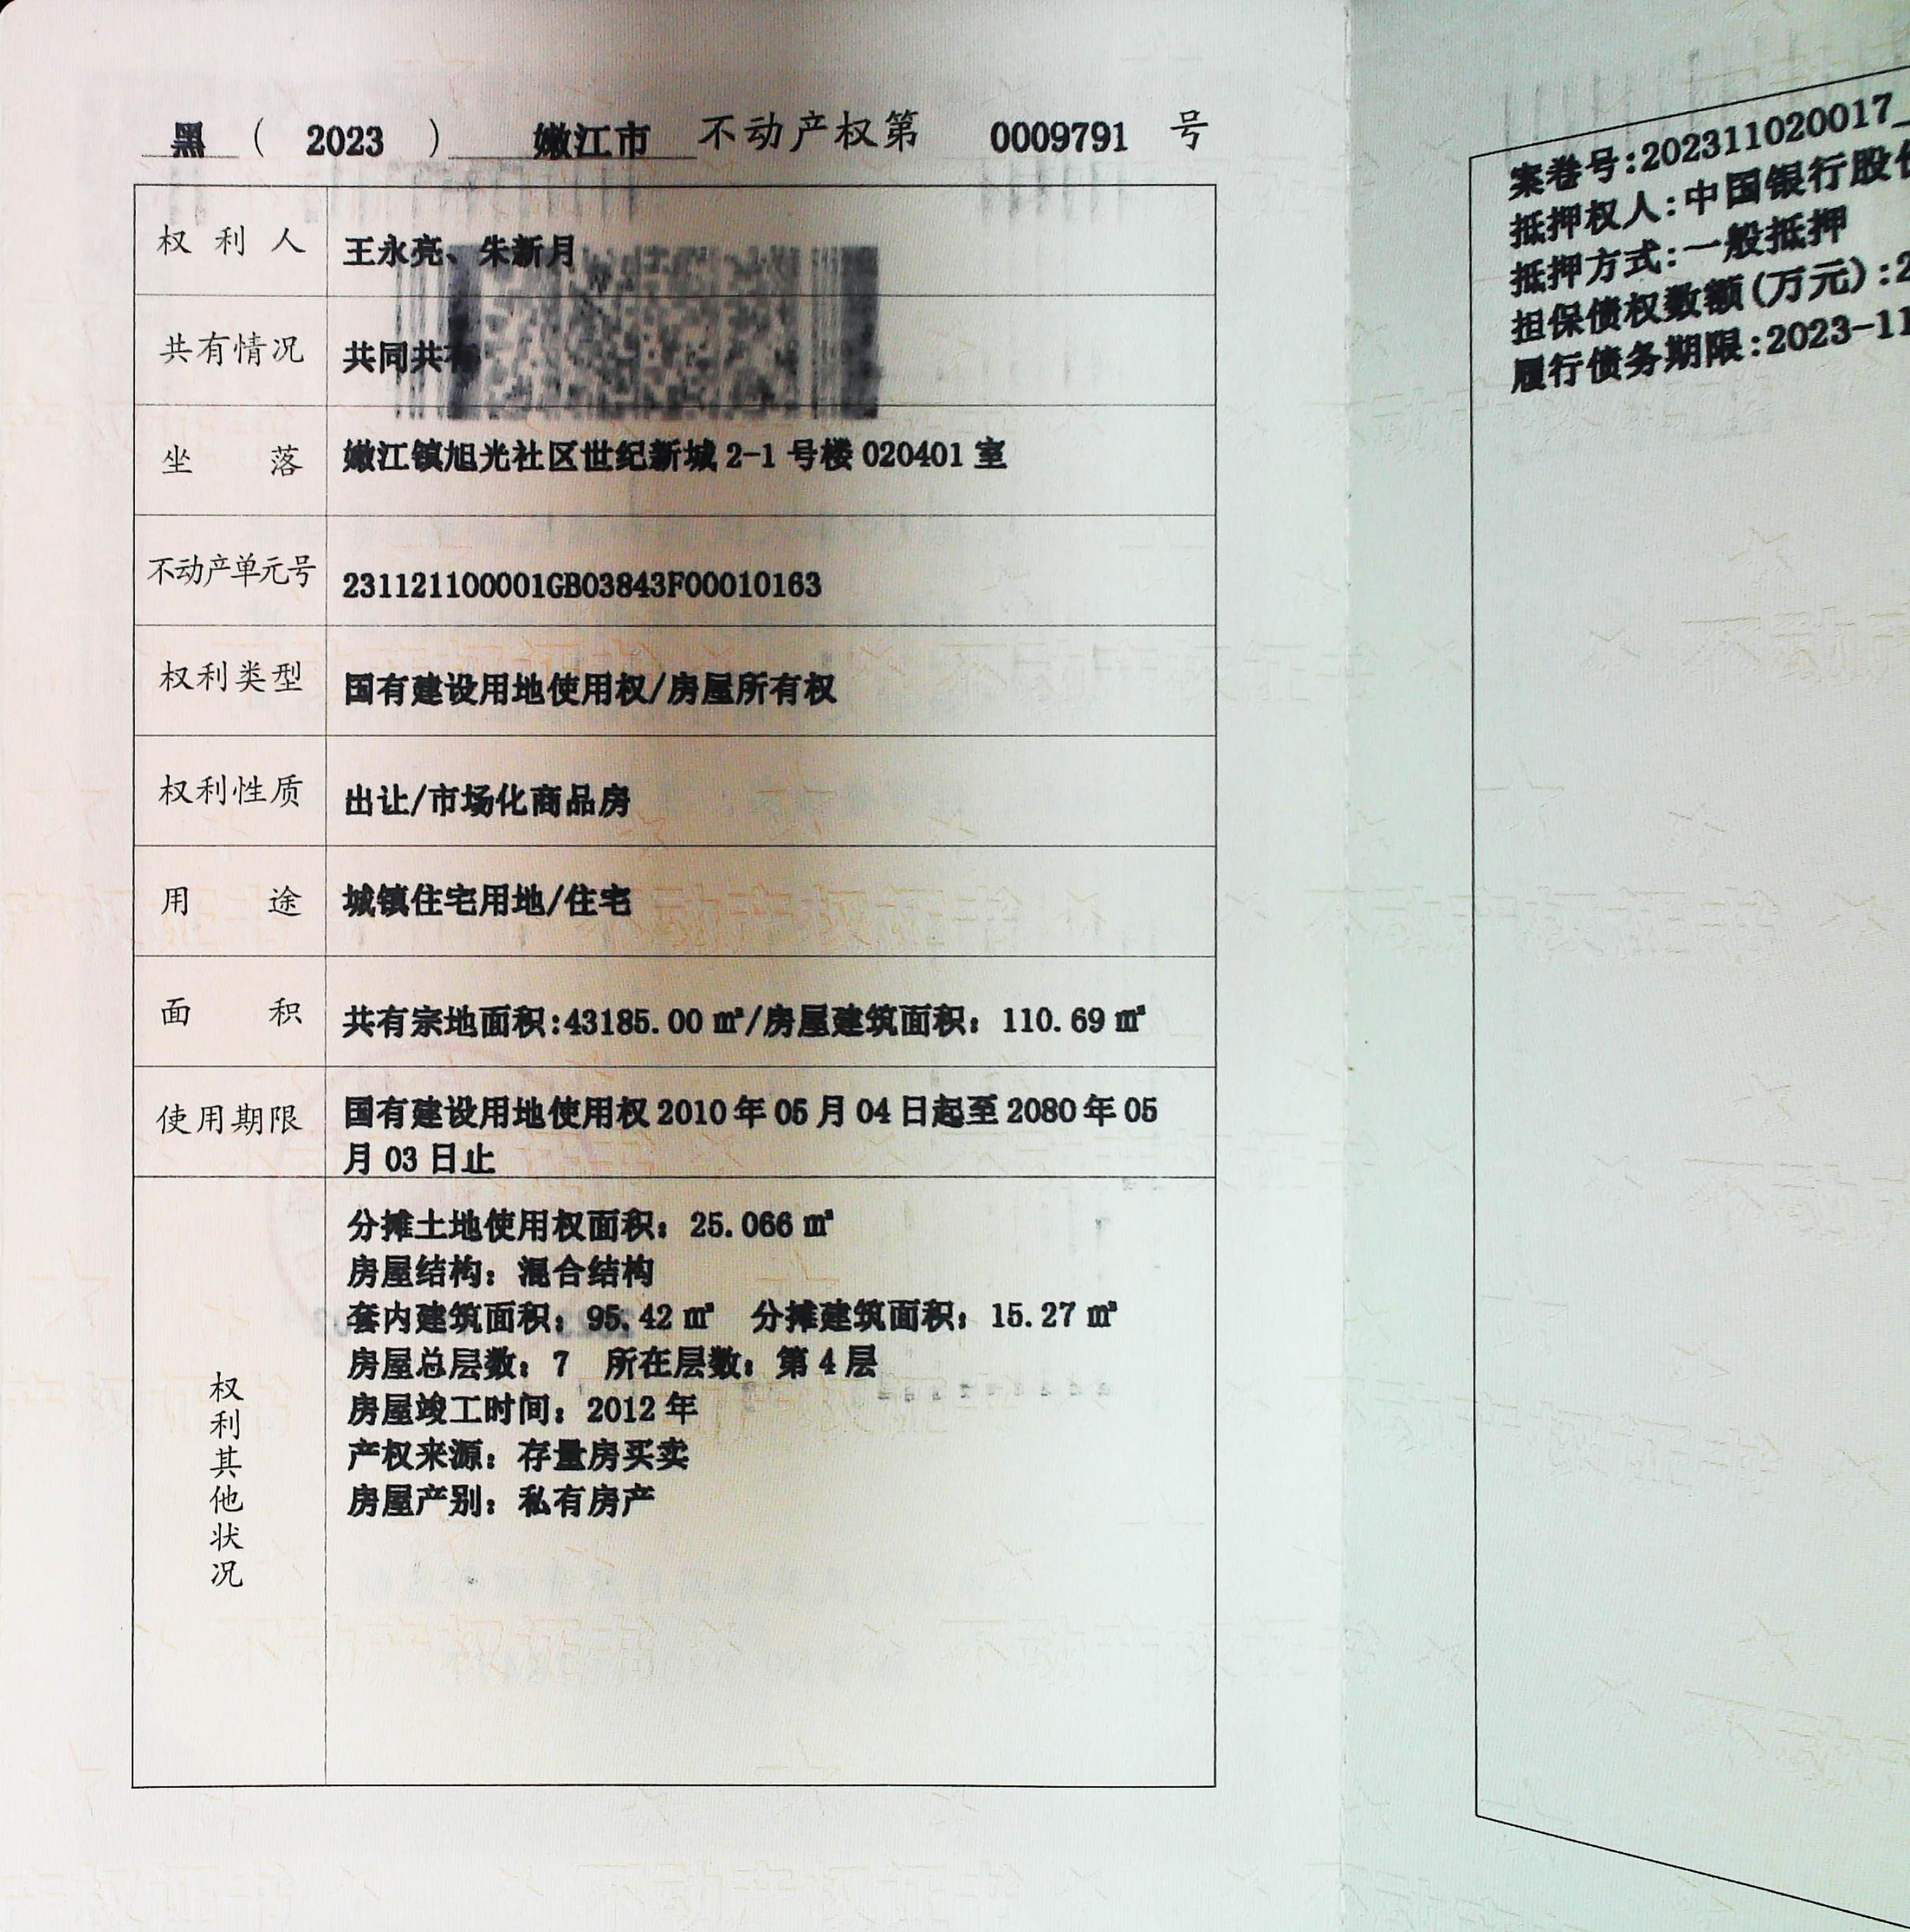 黑 ( 2023 ) 嫩江市 不动产权第 0009791 号
权利人 王永亮、朱新月
共有情况 共同共有
坐落 嫩江镇旭光社区世纪新城 2-1 号楼 020401 室
不动产单元号 231121100001GB03843F00010163
权利类型 国有建设用地使用权/房屋所有权
权利性质 出让/市场化商品房
用途 城镇住宅用地/住宅
面积 共有宗地面积:43185.00 ㎡/房屋建筑面积：110.69 ㎡
使用期限 国有建设用地使用权 2010 年 05 月 04 日起至 2080 年 05
月 03 日止
权利其他状况
分摊土地使用权面积：25.066 ㎡
房屋结构：混合结构
套内建筑面积：95.42 ㎡ 分摊建筑面积：15.27 ㎡
房屋总层数：7 所在层数：第 4 层
房屋竣工时间：2012 年
产权来源：存量房买卖
房屋产别：私有房产
案卷号:202311020017_
抵押权人:中国银行股份
抵押方式:一般抵押
担保债权数额(万元):2
履行债务期限:2023-11